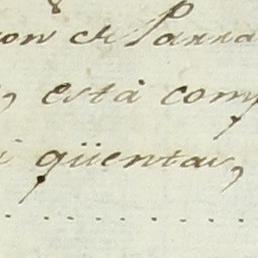 on de Parra
, està com
i qüentas,